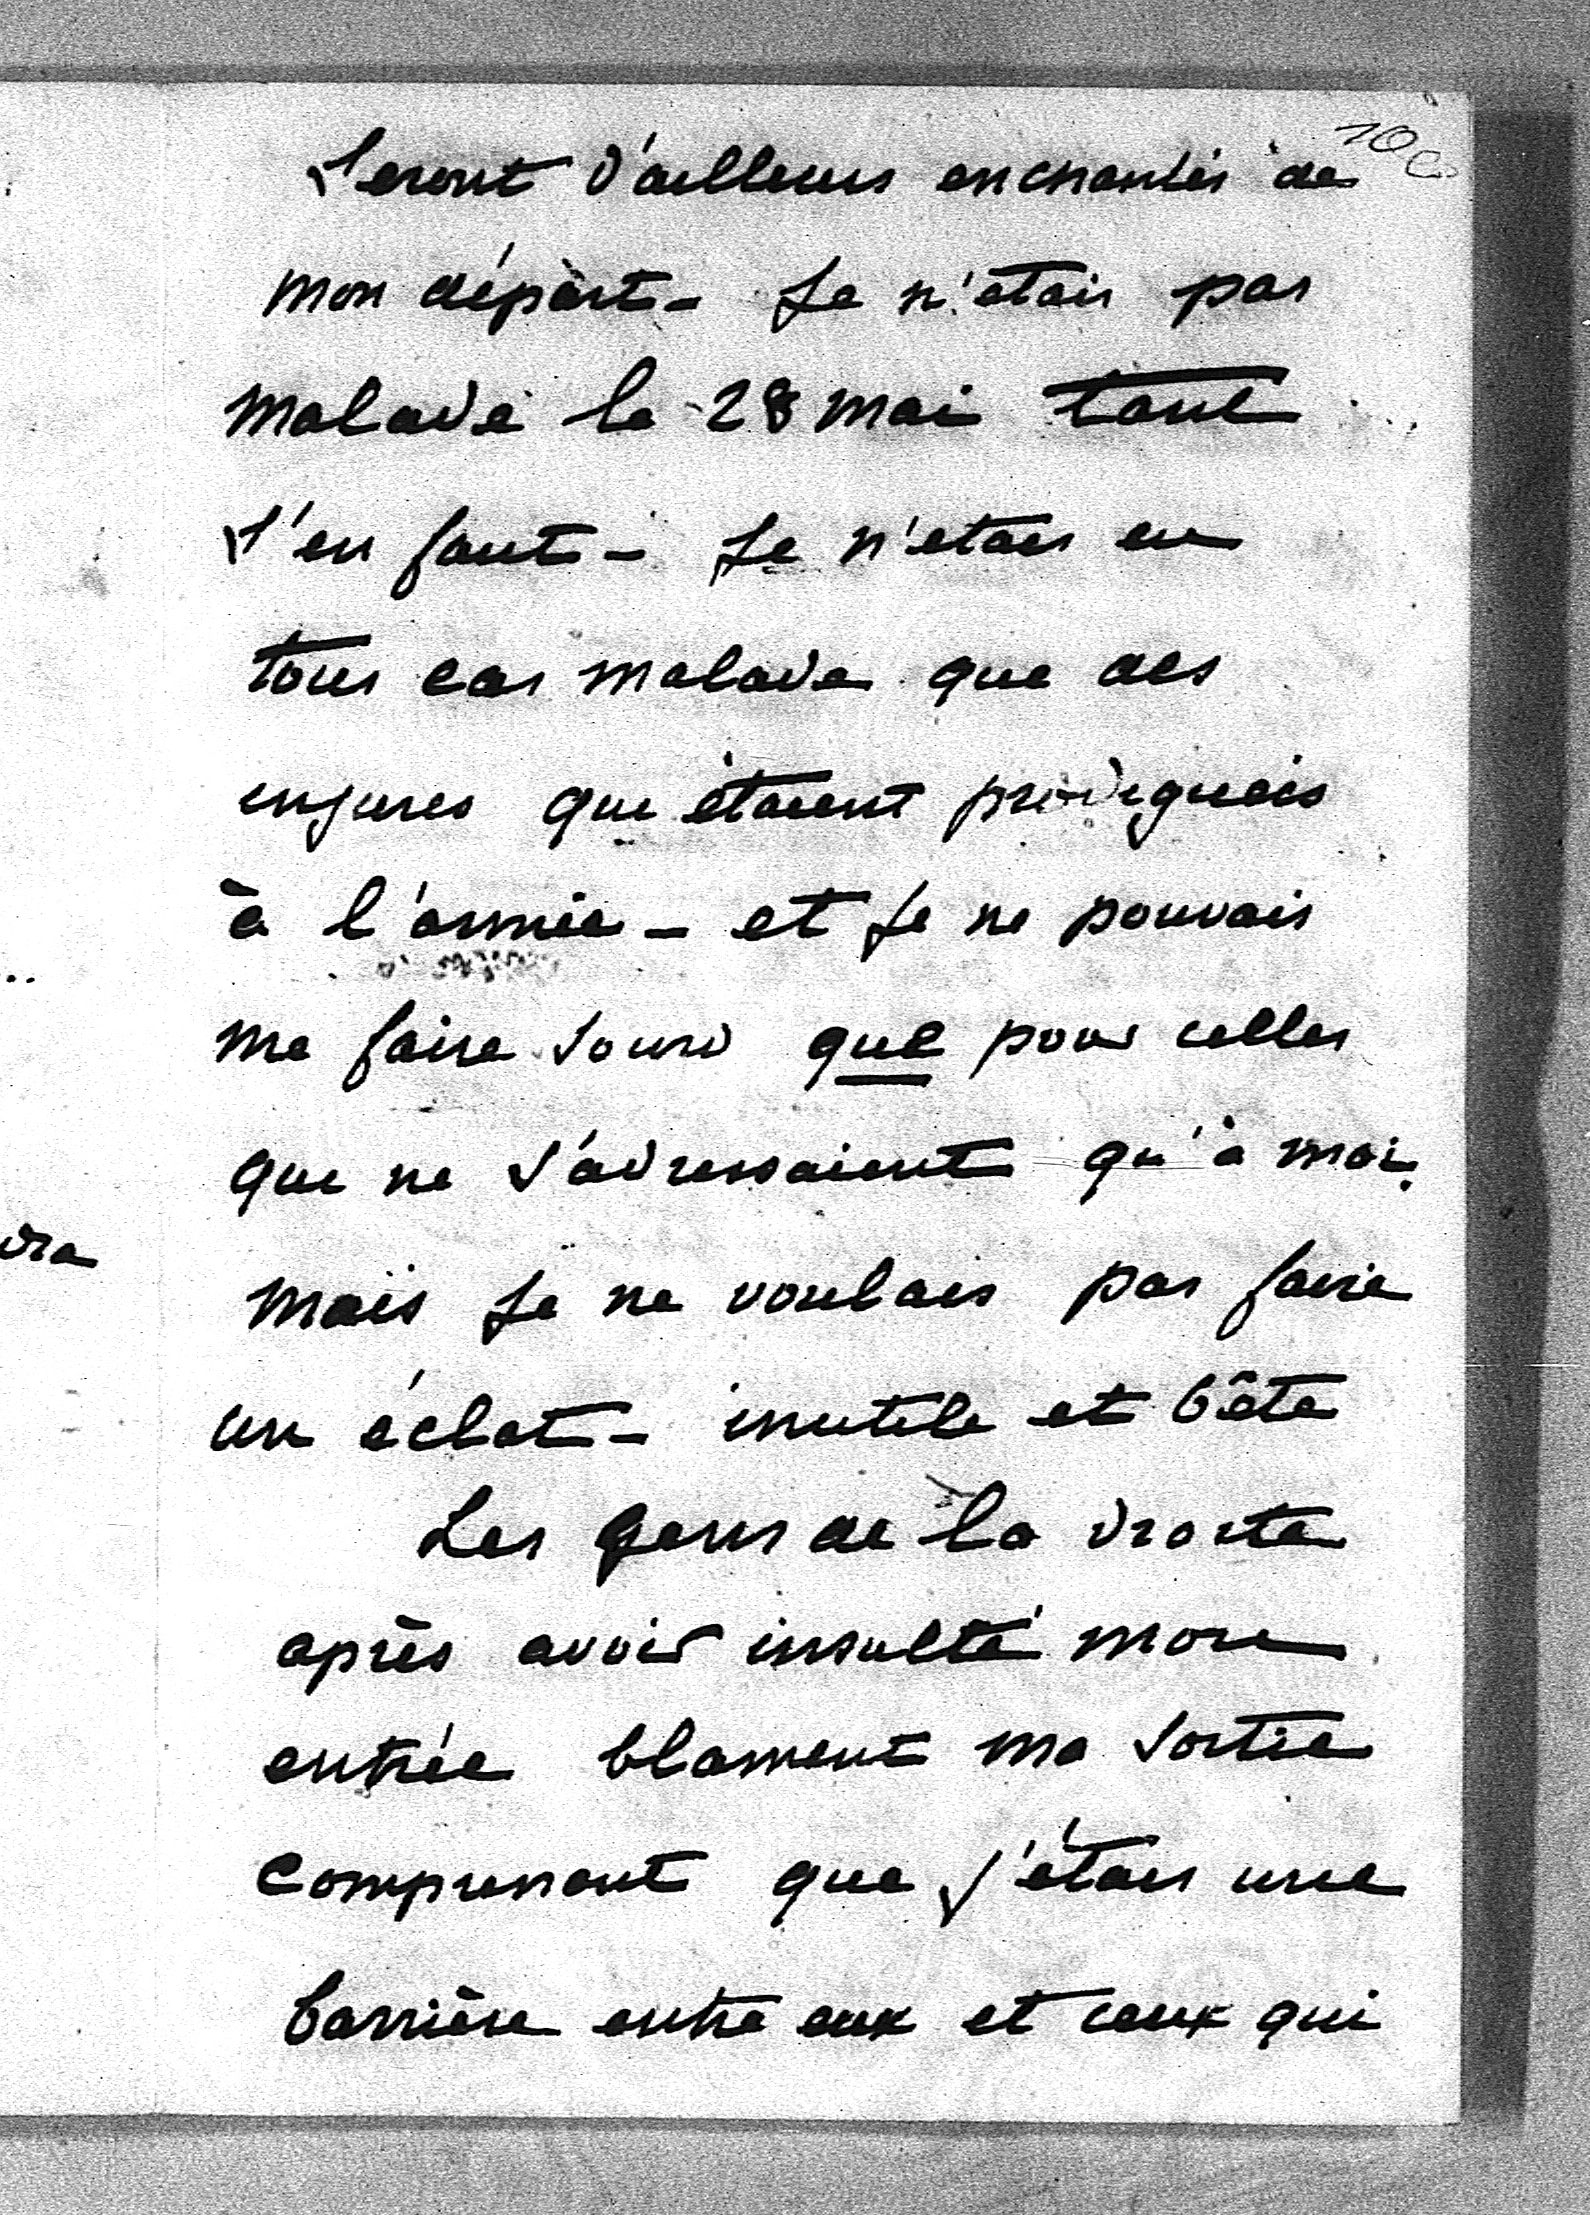 seront d'ailleurs enchantés de
mon départ - Je n'étais pas
malade le 28 mai tant
s'en faut - Je n'étais en
tous cas malade que des
injures qui étaient prodiguées
à l'armée - et je ne pouvais
me faire sourd que pour celles
qui ne s'adressaient qu'à moi.
Mais je ne voulais pas faire
un éclat - inutile et bête
Les gens de la droite
après avoir insulté mon
entrée blament ma sortie
comprenant que j'étais une
barrière entre eux et ceux qui